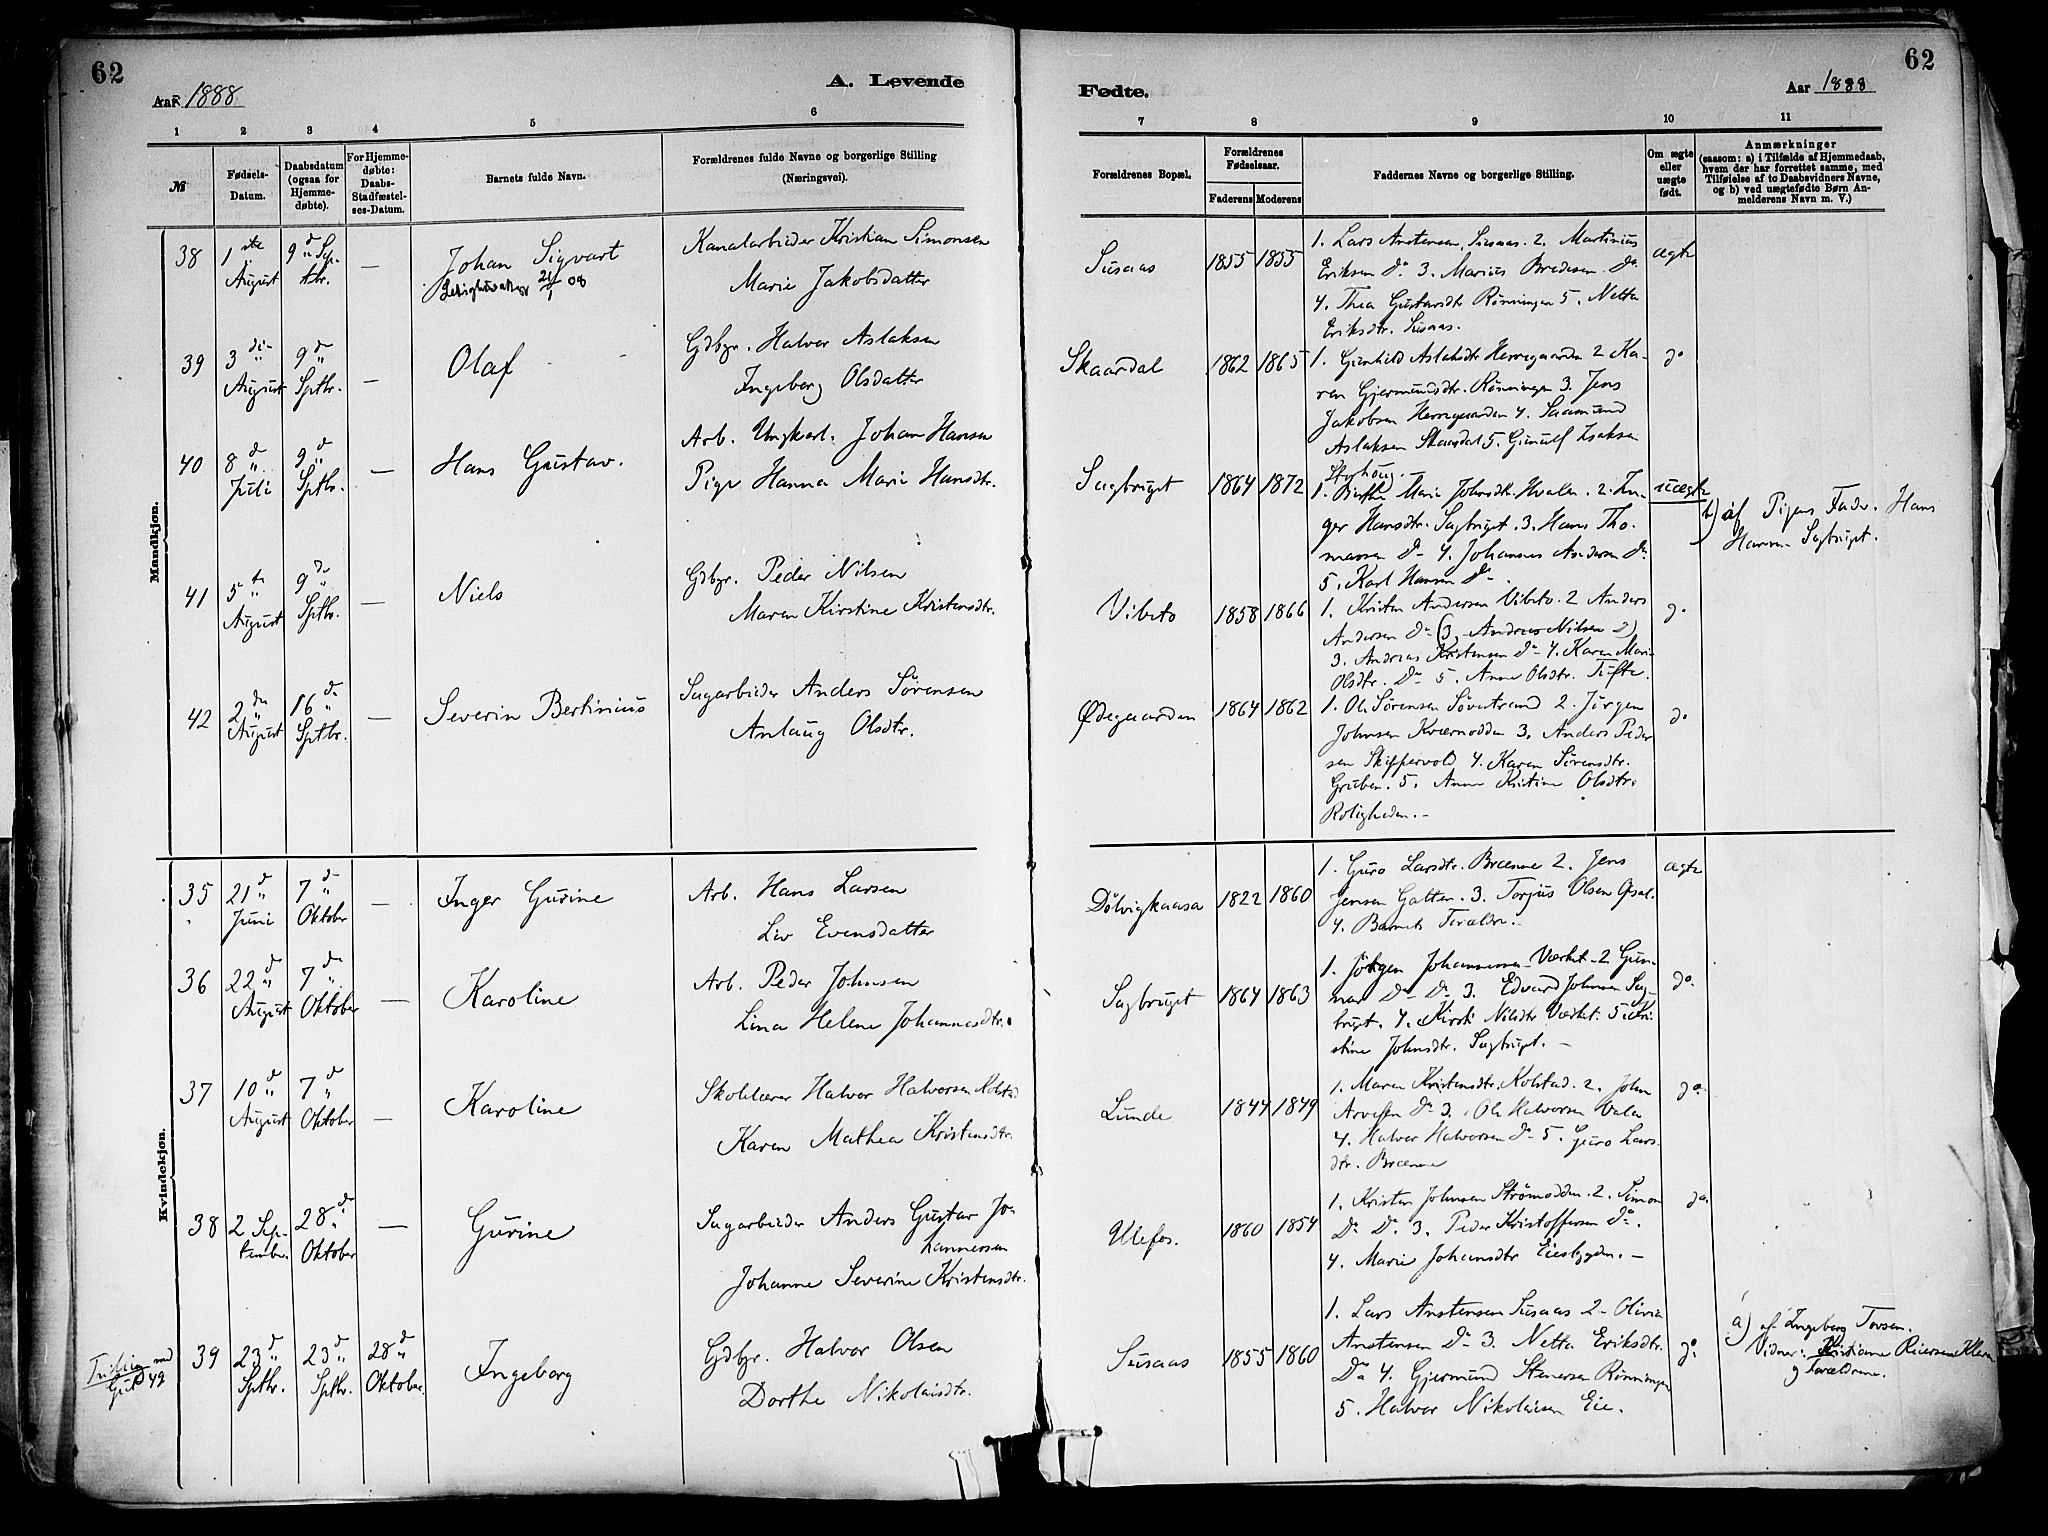 62
Aar 1888
A. Levende
1 2 3 4 5 6
№
Fødsels-
Datum.
Daabsdatum
(ogsaa for
Hjemme-
døbte).
For Hjemme-
døbte:
Daabs-
Stadfæstel-
ses-Datum.
Barnets fulde Navn.
Forældrenes fulde Navne og borgerlige Stilling
(Næringsvei).
Mandkjøn.
38 1ste August 9d Sep-tbr. — Johan Sigvart
21/1 08
Kanalarbeider Kristian Simonsen
Marie Jakobsdatter
39 3die August 9d Sptbr. — Olaf
Gdbgr. Halvor Aslaksen
Ingeborg Olsdatter
40 8d Juli 9d Sptbr. — Hans Gustav.
Arb. Ungkarl. Johan Hansen
Pige Hanna Marie Hansdtr.
41 5te August 9de Sptbr. — Niels
Gdbgr. Peder Nilsen
Maren Kirstine Kristensdtr.
42 2den August 16de Sptbr. — Severin Bertinius
Sagarbeider Anders Sørensen
Anlaug Olsdtr.
Kvindekjøn.
35 21d Juni 7d Oktober — Inger Gurine
Arb. Hans Larsen
Liv Evensdatter
36 22d August 7de Oktober — Karoline
Arb. Peder Johnsen
Lina Helene Johannesdtr.
37 10d August 7d Oktober — Karoline
Skolelærer Halvor Halvorsen Kolstad
Karen Mathea Kristensdtr.
38 2 Sep-tember. 28de Oktober — Gurine
Sagarbeider Anders Gustav Jo-
hannessen
Johanne Severine Kristensdtr.
39 23d Sptbr. 23d Sptbr. 28d Oktober. Ingeborg
Gdbgr. Halvor Olsen
Dorthe Nikolaisdtr.
62
Fødte.
Aar 1888
7 8 9 10 11
Forældrenes Bopæl.
Forældrenes
Fødselsaar.
Faderens Moderens
Faddernes Navne og borgerlige Stilling.
Om ægte
eller
uægte
født.
Anmærkninger
(saasom: a) i Tilfælde af Hjemmedaab,
hvem der har forrettet samme, med
Tilføielse af to Daabsvidners Navne,
og b) ved uægtefødte Børn An-
melderens Navn m. V.)
Susaas 1855 1855 ægte
1. Lars Anstensen, Susaas. 2. Martinius
Eriksen Do 3. Marius Bredesen. do
4. Thea Gustavsdtr Rönningen 5. Netta
Eriksdtr. Susaas.
Skaardal 1862 1865 do
1. Gunhild Aslaksdtr Herregaarden 2 Ka-
ren Gjermundsdtr. Rönningen 3. Jens
Jakobsen Herregaarden 4. Saamund
Aslaksen Skaardal 5. Gunulf Isaksen
Sagbruget 1864 1872 uægte
1. Berthe Marie Johnsdtr. Hvalen. 2. In-
ger Hansdtr. Sagbruget. 3. Hans Tho-
massen Do 4. Johannes Andersen Do
5. Karl Hansen Do.
b) af Pigens Fader. Hans
Hansen Sagbruget.
Vibeto 1858 1866 do
1. Kristen Andersen Vibeto. 2 Anders
Andersen Do (3. Andreas Nilsen D)
3. Andreas Kristensen Do 4. Karen Marie
Olsdtr. Do 5. Anne Olsdtr. Tufte.
Ødegaarden 1864 1862 do
1. Ole Sørensen Søvestrand 2. Jörgen
Johnsen Kværnodden 3. Anders Peder
sen Skippervold 4. Karen Sörensdtr.
Gruben. 5. Anne Kristine Olsdtr.
Roligheden.—
Dölvigkaasa 1822 1860 ægte
1. Guro Larsdtr. Brænne 2. Jens
Jensen Galten. 3. Torjus Olsen
4. Barnets Forældre.—
Sagbruget 1864 1863 do
1. Jörgen Johannessen Værket 2 Gun-
nar Do Do 3. Edvard Johnsen Sag-
bruget. 4. Kirsti Nilsdtr Værket. 5. Kri-
stine Johnsdtr. Sagbruget.—
Lunde 1844 1849 do
1. Maren Kristensdtr. Kolstad. 2. John
Arvesen Do 3. Ole Halvorsen Vala
4. Halvor Halvorsen Do 5. Guro Lars-
dtr. Brænne
Ulefos. 1860 1854 do
1. Kristen Johnsen Strömodden. 2. Simon
Do Do 3. Peder Kristoffersen Do.
4. Marie Johansdtr Eiesbygden.—
Susaas 1855 1860 do
1. Lars Anstensen Susaas 2 Olivia
Anstensen Do 3. Netta Eriksdtr.
Do 4. Gjermund Stenersen Rönningen
5. Halvor Nikolaisen Eie.
a) af Ingeborg Tovsen.
Vidner: Kristiane Riiersen Kleven
og Forældrene.